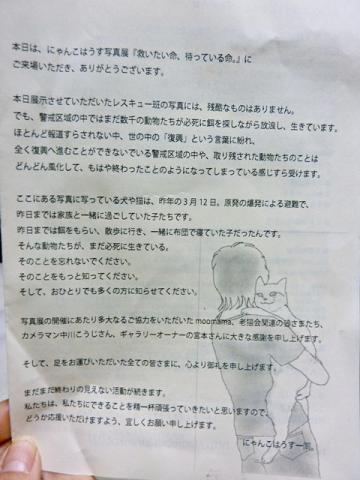 本日は、にゃんこはうす写真展『救いたい命、待っている命。』に
ご来場いただき、ありがとうございます。
本日展示させていただいたレスキュー班の写真には、残酷なものはありません。
でも、警戒区域の中ではまだ数千の動物たちが必死に餌を探しながら放浪し、生きています。
ほとんど報道すらされない中、世の中の「復興」という言葉に紛れ、
全く復興へ進むことができないでいる警戒区域の中や、取り残された動物たちのことは
どんどん風化して、もはや終わったことのようになってしまっている感じすら受けます。
ここにある写真に写っている犬や猫は、昨年の3月12日、原発の爆発による避難で、
昨日までは家族と一緒に過ごしていた子たちです。
昨日までは餌をもらい、散歩に行き、一緒に布団で寝ていた子だったんです。
そんな動物たちが、まだ必死に生きている。
そのことを忘れないでください。
そのことをもっと知ってください。
そして、おひとりでも多くの方に知らせてください。
写真展の開催にあたり多大なるご協力をいただいた moomama、老猫会関連の皆さまたち、
カメラマン中川こうじさん、ギャラリーオーナーの宮本さんに大きな感謝を申し上げます。
そして、足をお運びいただいた全ての皆さまに、心より御礼を申し上げます。
まだまだ終わりの見えない活動が続きます。
私たちは、私たちにできることを精一杯頑張っていきたいと思いますので、
どうか応援いただけますよう、宜しくお願い申し上げます。
にゃんこはうす一同。